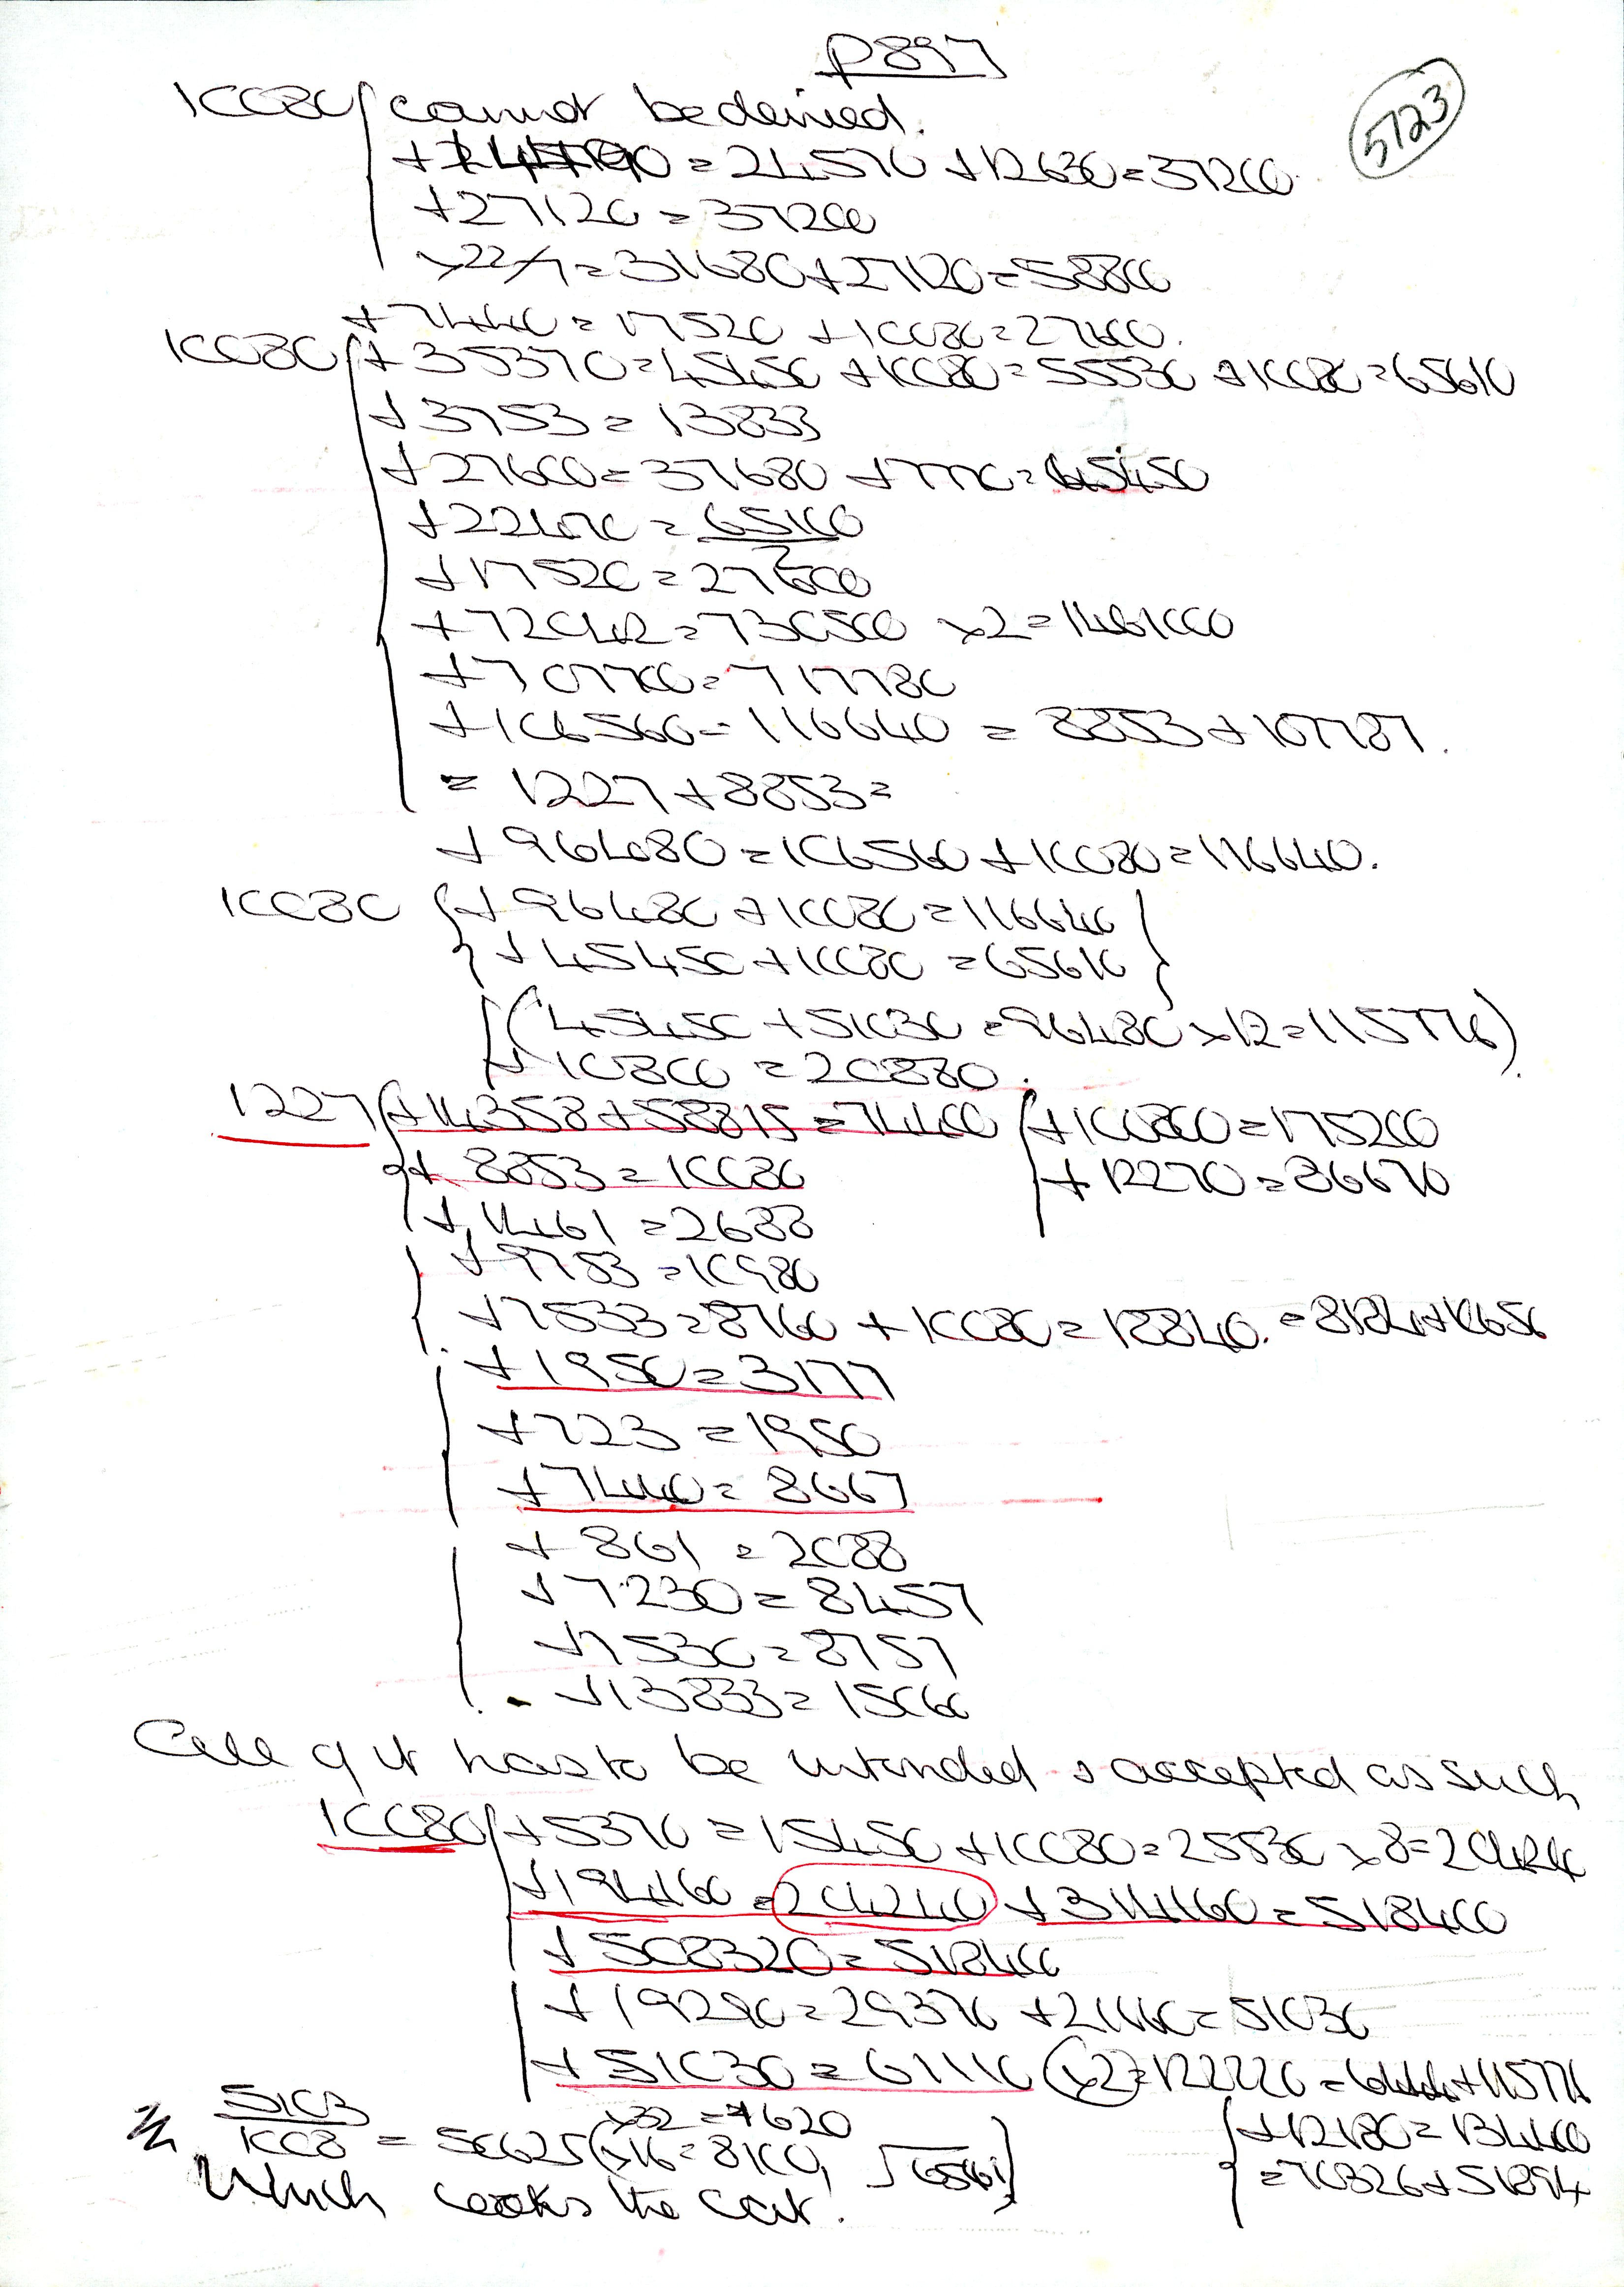 p897
5723
10080 cannot be denied.
= 24570 + 12630 = 37200
+ 27120 = 37200
x 22/7 = 31680 + 27120 = 58800
+ 7440 = 17520 + 10080 = 27600.
10080 + 35370 = 45450 + 10080 = 55530 + 10080 = 65610
+ 3753 = 13833
+ 27600 = 37680 + 7770 = 45450
+ 22470 = 65100/2
+ 17520 = 27600
+ 720420 = 730500 x 2 = 1461000
+ 707700 = 717780
+ 106560 = 116640 = 8853 + 107787.
= 1227 + 8853 =
+ 96480 = 106560 + 10080 = 116640.
10080 { + 96480 + 10080 = 116640 }
+ 45450 + 10080 = 65610
(45450 + 51030 = 96480 x 12 = 115776)
+ 10800 = 20880.
1227 + 14358 + 58815 = 74400 { + 100800 = 175200
+ 8853 = 10080 + 12270 = 86670
+ 1461 = 2688
+ 9753 = 10980
+ 7533 = 8760 + 10080 = 18840. = 8184 + 10656
+ 1950 = 3177
+ 723 = 1950
+ 7440 = 8667
+ 861 = 2088
+ 7230 = 8457
+ 7530 = 8757
+ 13833 = 15060
has to be intended & accepted as such
10080 + 5370 = 15450 + 10080 = 25530 x 8 = 204240
+ 194160 = 204240 + 314160 = 518400
+ 508320 = 518400
+ 19290 = 29370 + 21660 = 51030
+ 51030 = 61110 (x2) = 122220 = 6444 + 115776
5103/1008 = 50625 (x16 = 8100, √6561) x32 = 1620
+ 12180 = 134400
= 70326 + 51894
Which cooks the cat.